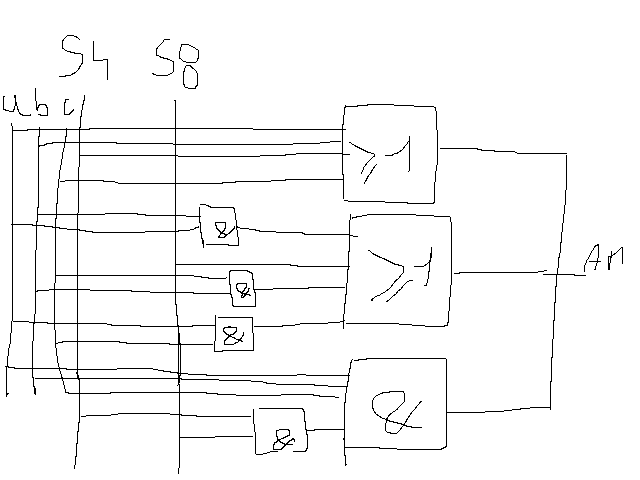 S4 S8
a b c
≥1
&
≥1
AM
&
&
&
&